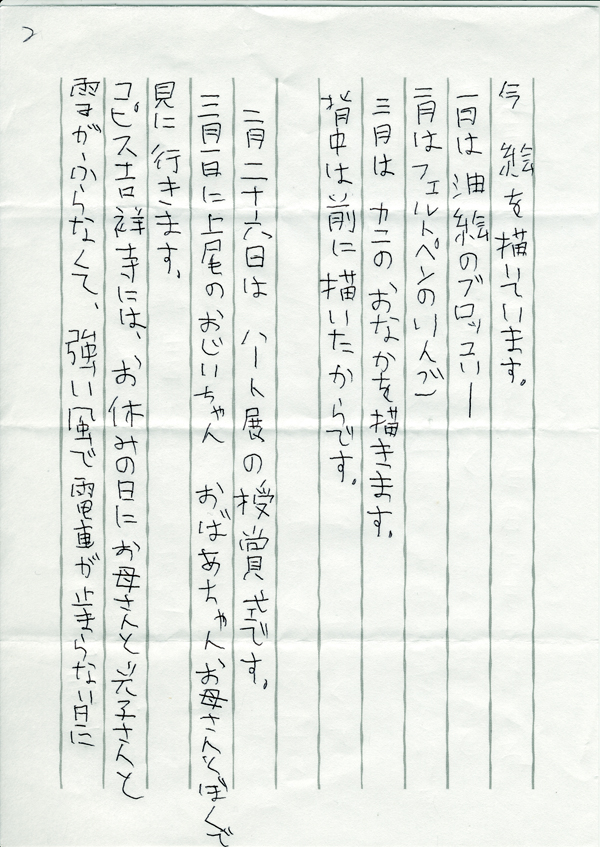 2
今 絵を描いています。
一月は油絵のブロッコリー
二月はフェルトペンのりんご
三月は カニの おなかを描きます。
背中は前に描いたからです。
二月二十六日は ハート展の授賞式です。
三月一日に上尾のおじいちゃん おばあちゃんお母さんとぼくで
見に行きます。
コピス吉祥寺には、お休みの日にお母さんと光子さんと
雪がふらなくて、強い風で電車が止まらない日に